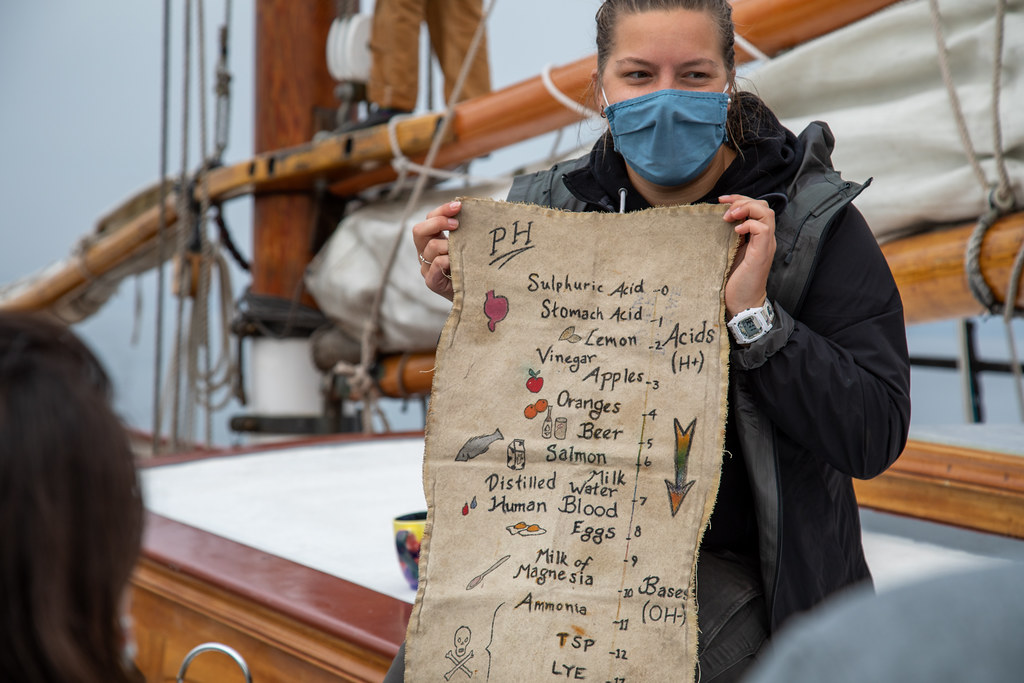 PH
Sulphuric Acid -0
Stomach Acid -1
Lemon -2 Acids
(H+)
Vinegar
Apples -3
Oranges -4
Beer -5
Salmon -6
Milk
Distilled Water -7
Human Blood
Eggs -8
-9
Milk of
Magnesia -10 Bases
(OH-)
Ammonia -11
TSP -12
LYE